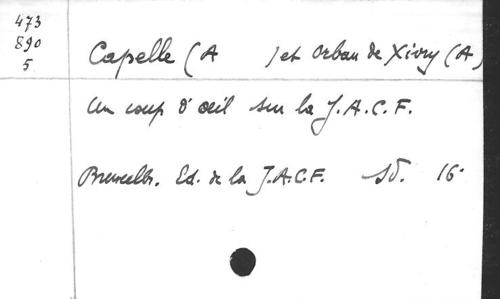 473
890
5
Capelle (A      ) et Orban de Xivry (A)
Un coup d'oeil sur la J.A.C.F.
Bruxelles. Ed. de la J.A.C.F. sd. 16°